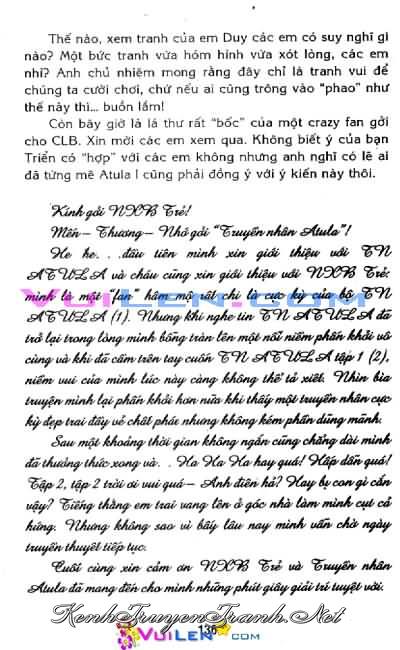 Thế nào, xem tranh của em Duy các em có suy nghĩ gì
nào? Một bức tranh vừa hóm hỉnh vừa xót lòng, các em
nhỉ? Anh chủ nhiệm mong rằng đây chỉ là tranh vui để
chúng ta cười chơi, chứ nếu ai cũng trông vào "phao" như
thế này thì... buồn lắm!
Còn bây giờ là lá thư rất "bốc" của một crazy fan gởi
cho CLB. Xin mời các em xem qua. Không biết ý của bạn
Triển có "hợp" với các em không nhưng anh nghĩ có lẽ ai
đã từng mê Atula I cũng phải đồng ý với ý kiến này thôi.
Kính gởi NXB Trẻ!
Mến - Thương - Nhớ gởi "Truyền nhân Atula"!
He he. . .đầu tiên mình xin giới thiệu với TN
ATULA và cháu cũng xin giới thiệu với NXB Trẻ:
mình là một "fan" hâm mộ rất chi là cực kỳ của bộ TN
ATULA (1). Nhưng khi nghe tin TN ATULA đã
trở lại trong lòng mình bỗng tràn lên một nỗi niềm phấn khởi vô
cùng và khi đã cầm trên tay cuốn TN ATULA tập 1 (2),
niềm vui của mình lúc này càng không thể tả xiết. Nhìn bìa
truyện mình lại phấn khởi hơn nữa khi thấy một truyền nhân cực
kỳ đẹp trai đầy vẻ chất phác nhưng không kém phần dũng mãnh.
Sau một khoảng thời gian không ngắn cũng chẳng dài mình
đã thưởng thức xong và. . Ha Ha Ha hay quá! Hấp dẫn quá!
Tập 2, tập 2 trời ơi vui quá - Anh điên hả? Hay bị con gì cắn
vậy? Tiếng thằng em trai vang lên ở góc nhà làm mình cụt cả
hứng. Nhưng không sao vì bấy lâu nay mình vẫn chờ ngày
truyền thuyết tiếp tục.
Cuối cùng xin cảm ơn NXB Trẻ và Truyền nhân
Atula đã mang đến cho mình những phút giây giải trí tuyệt vời.
136
KenhTruyenTranh.Net
VUILEN.COM